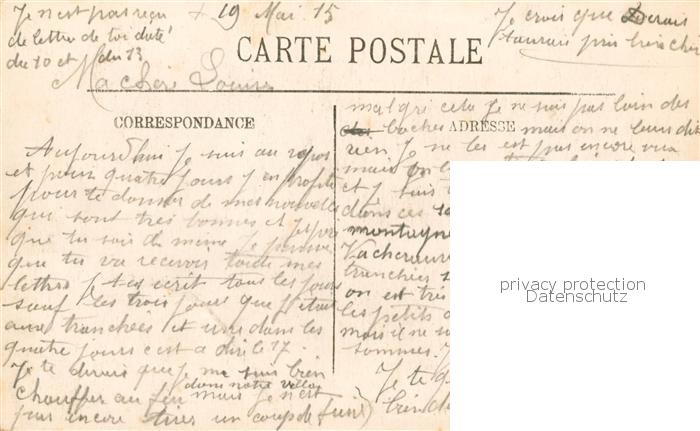 Je n'est pas reçu
de lettre de toi daté
du 10 et du 13
+ 19 Mai 15
Je crois que Derais
t'aurais pris bien cher
CARTE POSTALE
Ma cher Louise
CORRESPONDANCE
ADRESSE
Aujourd'hui Je suis au repos
et pour quatre jours j'en profite
pour te donner de mes nouvelles
que sont tres bonnes et
que tu sois de meme Je pense
que tu va recevoir toute mes
lettres Je t'es ecrit tous les jours
sauf les trois jours que j'etait
aux tranchées et une dans les
quatre jours c'est a dire le 17.
Je te dirais que Je me suis bien
chauffer au feu dans notre village mais Je n'est
pas encore tirer un coup de fusil)
malgre cela Je ne suis pas loin des
boches mais on ne leurs dit
rien Je ne les est pas encore vus
mais on
et J suis
dans ces
montagne
Vacheraus
tranchées
on est tres
les petits
mais il ne
sommes. J
Je te
bien
privacy protection
Datenschutz